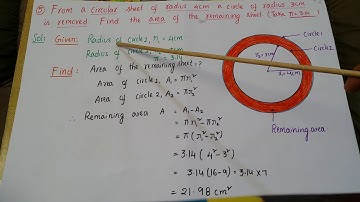 ⑤ From a Circular sheet of radius 4cm a circle of radius 3cm
is removed. Find the area of the remaining sheet (Take π = 3.14)
Sol: Given: Radius of circle 1, r₁ = 4cm
Radius of circle 2,
π = 3.14
Find: Area of the remaining sheet = ?
Area of circle 1, A₁ = πr₁²
Area of circle 2, A₂ = πr₂²
∴ Remaining area A = A₁-A₂
= πr₁²-πr₂²
= π(r₁²-r₂²)
= 3.14 ( 4²-3²)
= 3.14 (16-9) = 3.14 × 7
= 21.98 cm²
Circle 1
Circle 2
r₂=3cm
r₁=4cm
Remaining area